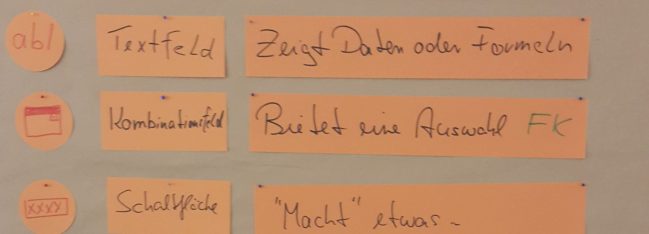 abl Textfeld Zeigt Daten oder Formeln
Kombinationsfeld Bietet eine Auswahl FK
XXXX Schaltfläche "Macht" etwas -